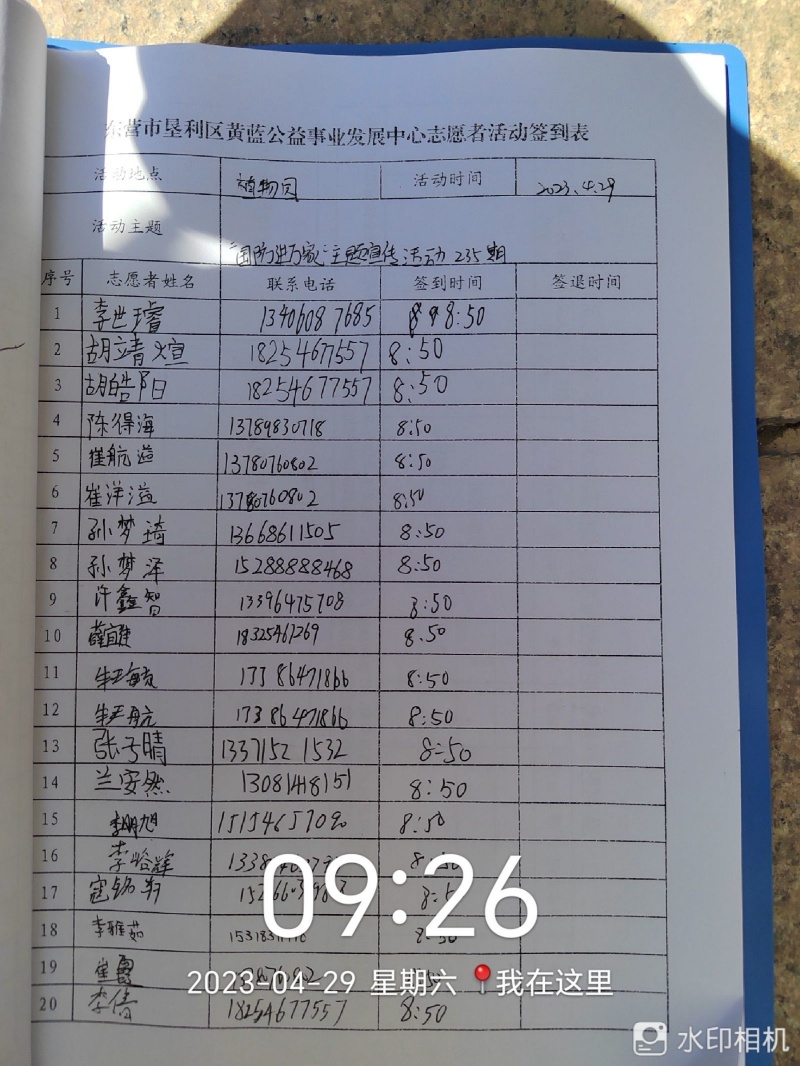 东营市垦利区黄蓝公益事业发展中心志愿者活动签到表
活动地点 植物园 活动时间 2023.4.29
活动主题 "国防进万家"主题宣传活动235期
序号 志愿者姓名 联系电话 签到时间 签退时间
1 李世璿 13406087685 8:50
2 胡靖煊 18254677557 8:50
3 胡皓阳 18254677557 8:50
4 陈得海 13789830718 8:50
5 崔航溢 13780760802 8:50
6 崔洋溢 13780760802 8:50
7 孙梦琦 13668611505 8:50
8 孙梦泽 15288888468 8:50
9 许鑫智 13396475708 8:50
10 18325467269 8:50
11 17386471866 8:50
12 17386471866 8:50
13 张子晴 13371521532 8:50
14 兰安然 13081418151 8:50
15 李明旭 8:50
16
17
18 李雅茹
19 崔
20 李倩 18254677557 8:50
09:26
2023-04-29 星期六 我在这里
水印相机